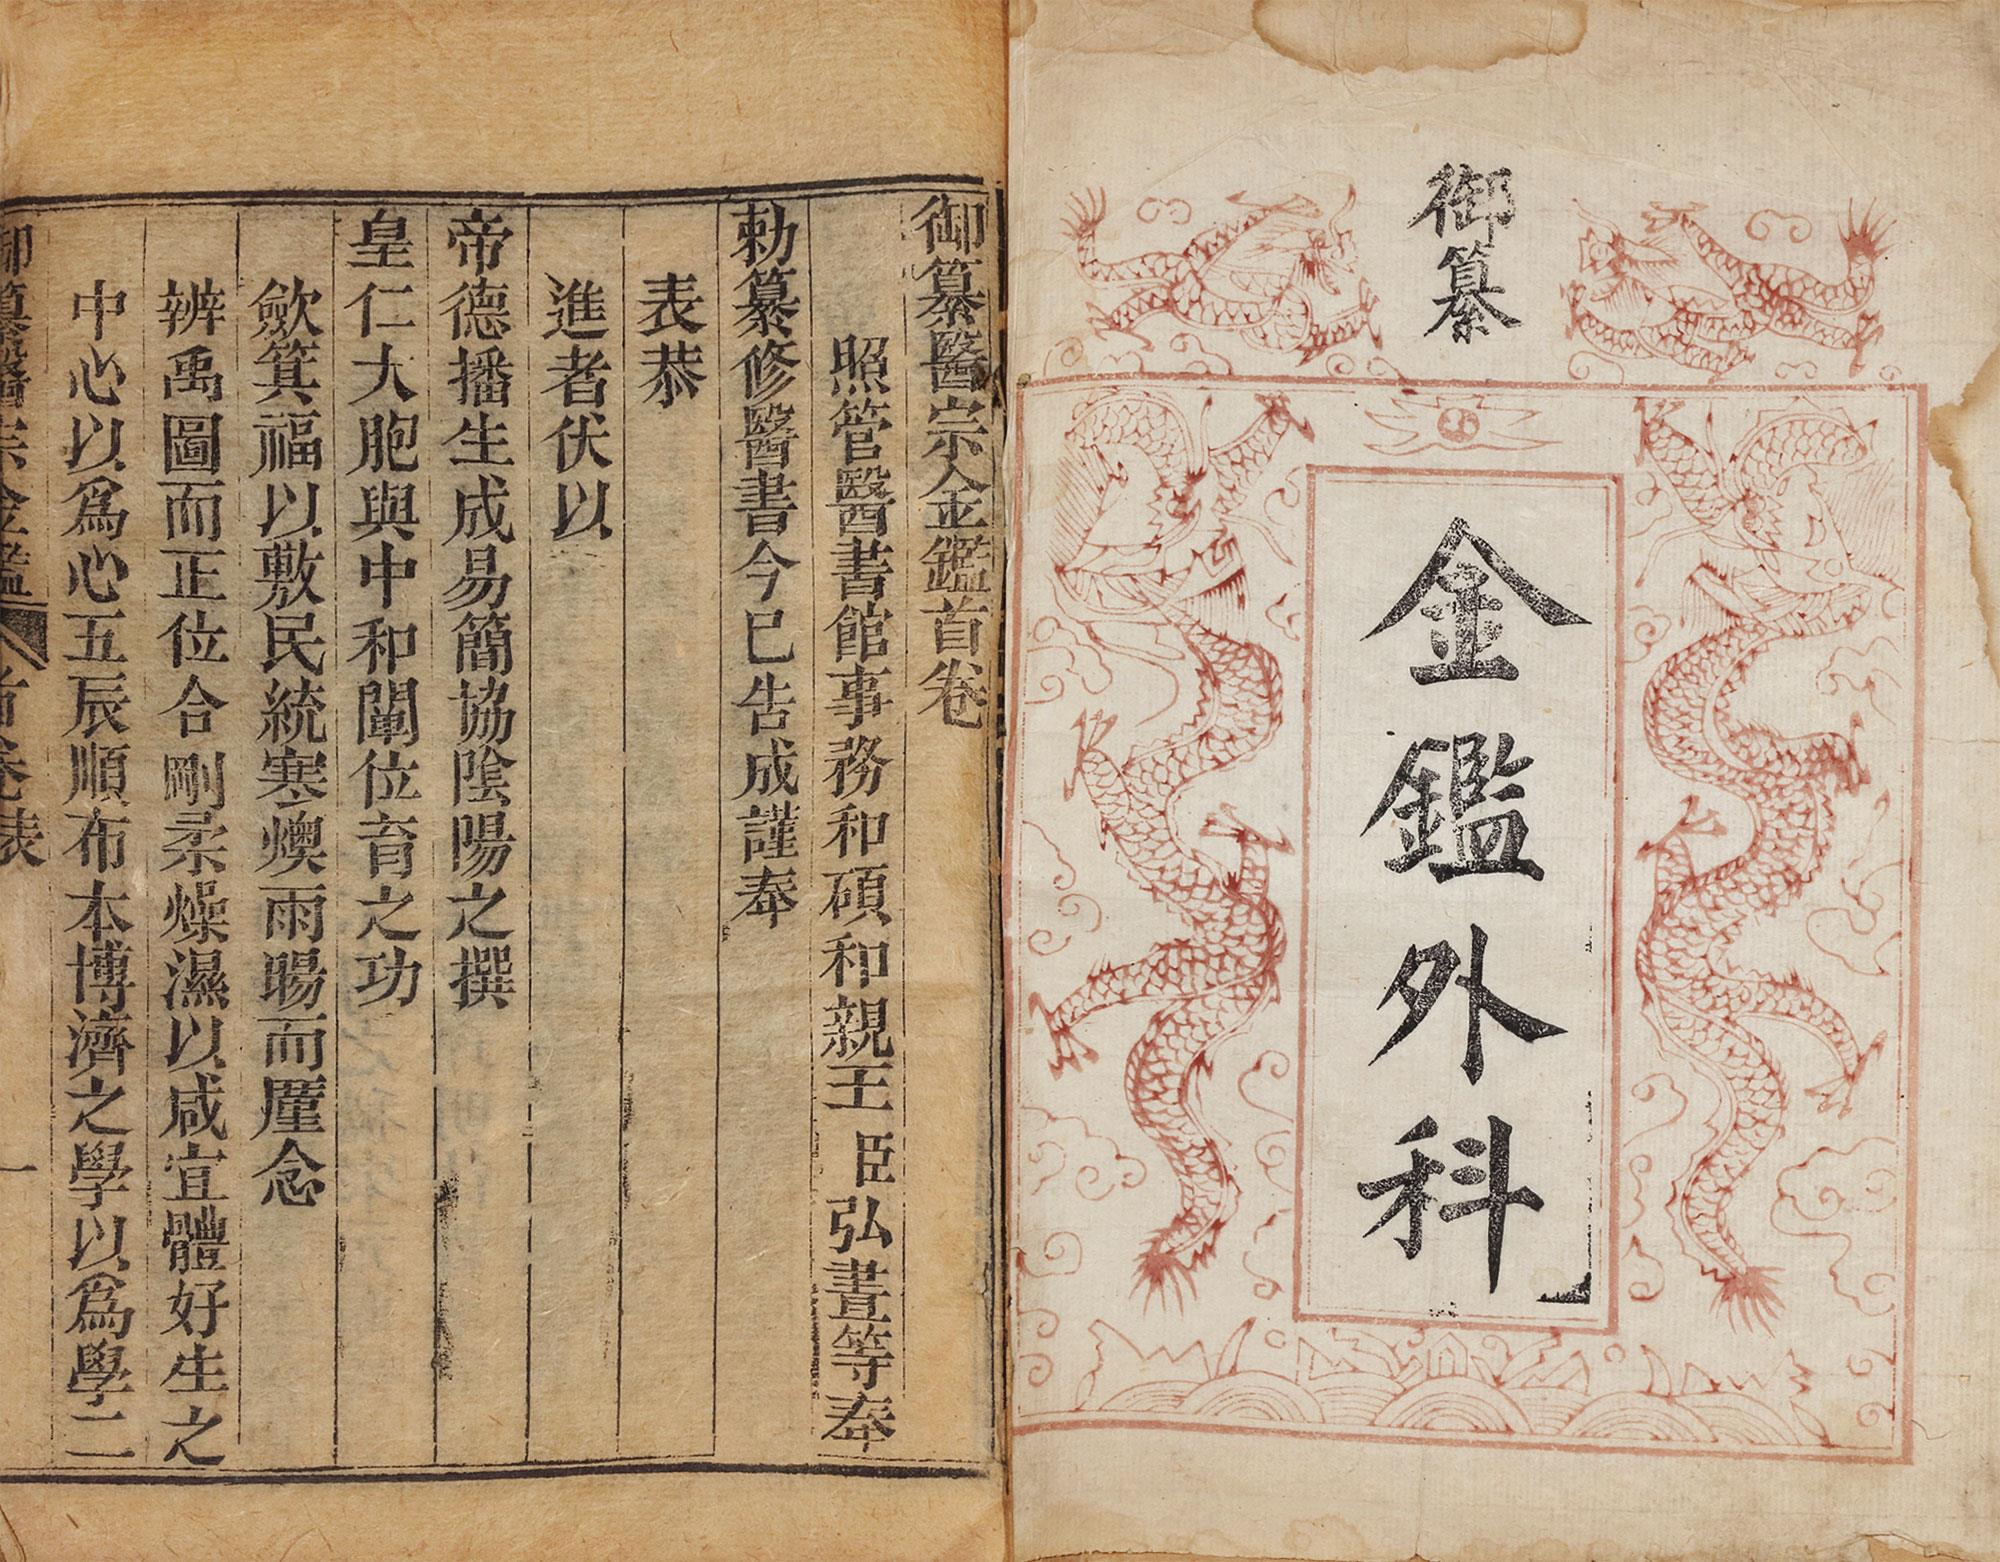 御纂
金鑑外科
御纂醫宗金鑑首卷
照管醫書館事務和碩和親王臣弘晝等奉
勅纂修醫書今已告成謹奉
表恭
進者伏以
帝德播生成易簡協陰陽之撰
皇仁大胞與中和闡位育之功
斂箕福以敷民統寒燠雨暘而廑念
辨禹圖而正位合剛柔燥濕以咸宜體好生之
中心以爲心五辰順布本博濟之學以爲學二
御纂醫宗金鑑 首卷表 一